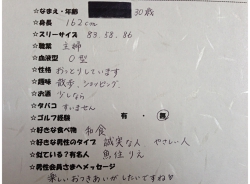 ☆なまえ・年齢 30歳
☆身長 162cm
☆スリーサイズ 83.58.86
☆職業 主婦
☆血液型 O型
☆性格 おっとりしています
☆趣味 散歩、ショッピング
☆お酒 少しなら
☆タバコ すいません
☆ゴルフ経験 有・無
☆好きな食べ物 和食
☆好きな男性のタイプ 誠実な人 やさしい人
☆似ている？有名人 魚住りえ
☆男性会員さまへメッセージ
楽しいおつきあいがしたいですね♡